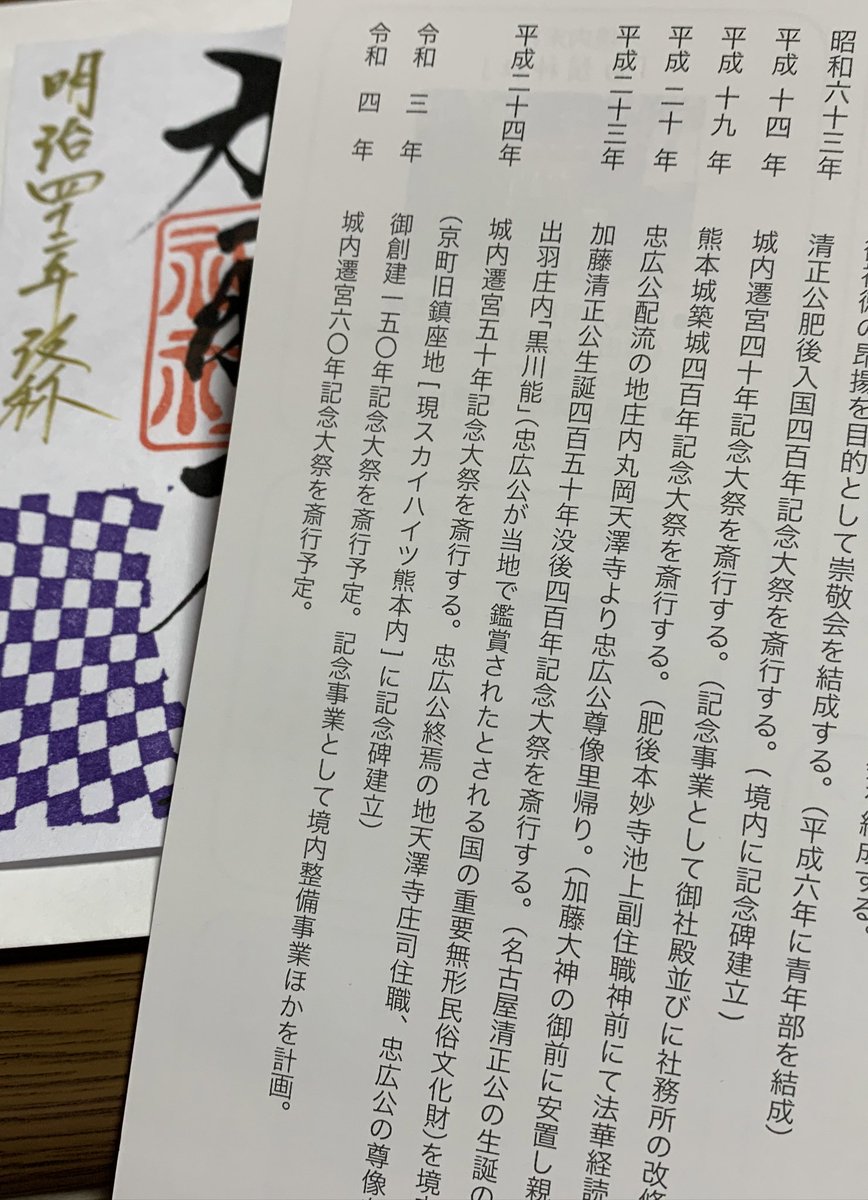 結成する。
神徳の昂揚を目的として崇敬会を結成する。(平成六年に青年部を結成)
昭和六十三年 清正公肥後入国四百年記念大祭を斎行する。(境内に記念碑建立)
平成 十四 年 城内遷宮四十年記念大祭を斎行する。(記念事業として御社殿並びに社務所の改修
平成 十九 年 熊本城築城四百年記念大祭を斎行する。(肥後本妙寺池上副住職神前にて法華経読
平成 二十 年 忠広公配流の地庄内丸岡天澤寺より忠広公尊像里帰り。(加藤大神の御前に安置し親
平成二十三年 加藤清正公生誕四百五十年没後四百年記念大祭を斎行する。(名古屋清正公の生誕の
出羽庄内「黒川能」(忠広公が当地で鑑賞されたとされる国の重要無形民俗文化財)を境
平成二十四年 城内遷宮五十年記念大祭を斎行する。忠広公終焉の地天澤寺庄司住職、忠広公の尊像
(京町旧鎮座地[現スカイハイツ熊本内]に記念碑建立)
令和 三 年 御創建一五〇年記念大祭を斎行予定。記念事業として境内整備事業ほかを計画。
令和 四 年 城内遷宮六〇年記念大祭を斎行予定。
明治四十二年 改称